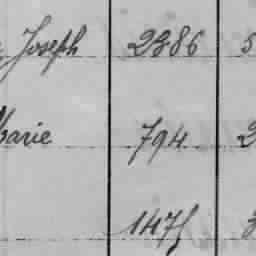 Joseph 2886 5
Marie 794 2
1475